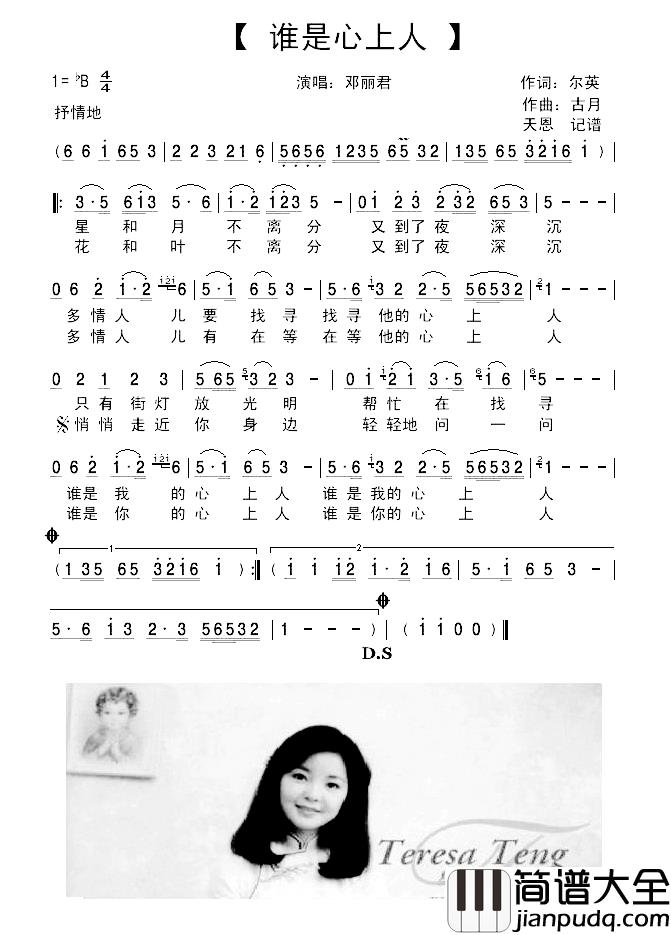 【 谁是心上人 】
1=♭B 4/4 演唱：邓丽君 作词：尔英
作曲：古月
抒情地
天恩 记谱
( 6 6 i 65 3 | 2 2 3 21 6 | 5656 1235 65 32 | 135 65 3216 i ) |
‖: 3·5 6i3 5·6 | i·2 i23 5 - | 0i 23 232 653 | 5 - - - |
星 和 月 不 离 分 又到了夜 深 沉
花 和 叶 不 离 分 又到了夜 深 沉
0 6 2 i·2 i2i 6 | 5·i 65 3 - | 5·6 i 32 2·5 56532 | 2 1 - - - |
多情人 儿要找寻 找寻他的心上 人
多情人 儿有在等 在等他的心上 人
0 2 1 2 3 | 5 65 5 3 2 3 - | 0i 2 2i 3·5 6 i6 | 6 5 - - - |
只有街灯放光明 帮忙在找寻
悄悄走近你身边 轻轻地问一问
0 6 2 i·2 i2i 6 | 5·i 65 3 - | 5·6 i 32 2·5 56532 | 2 1 - - - |
谁是我 的心上人 谁是我的心上 人
谁是你 的心上人 谁是你的心上 人
1 2
( 135 65 3216 i ) :‖ ( i i i2 i·2 i6 | 5·i 65 3 - |
5·6 i3 2·3 56532 | 1 - - - ) | ( i i 0 0 ) ‖
D.S
Teresa Teng
简谱大全
jianpudq.com